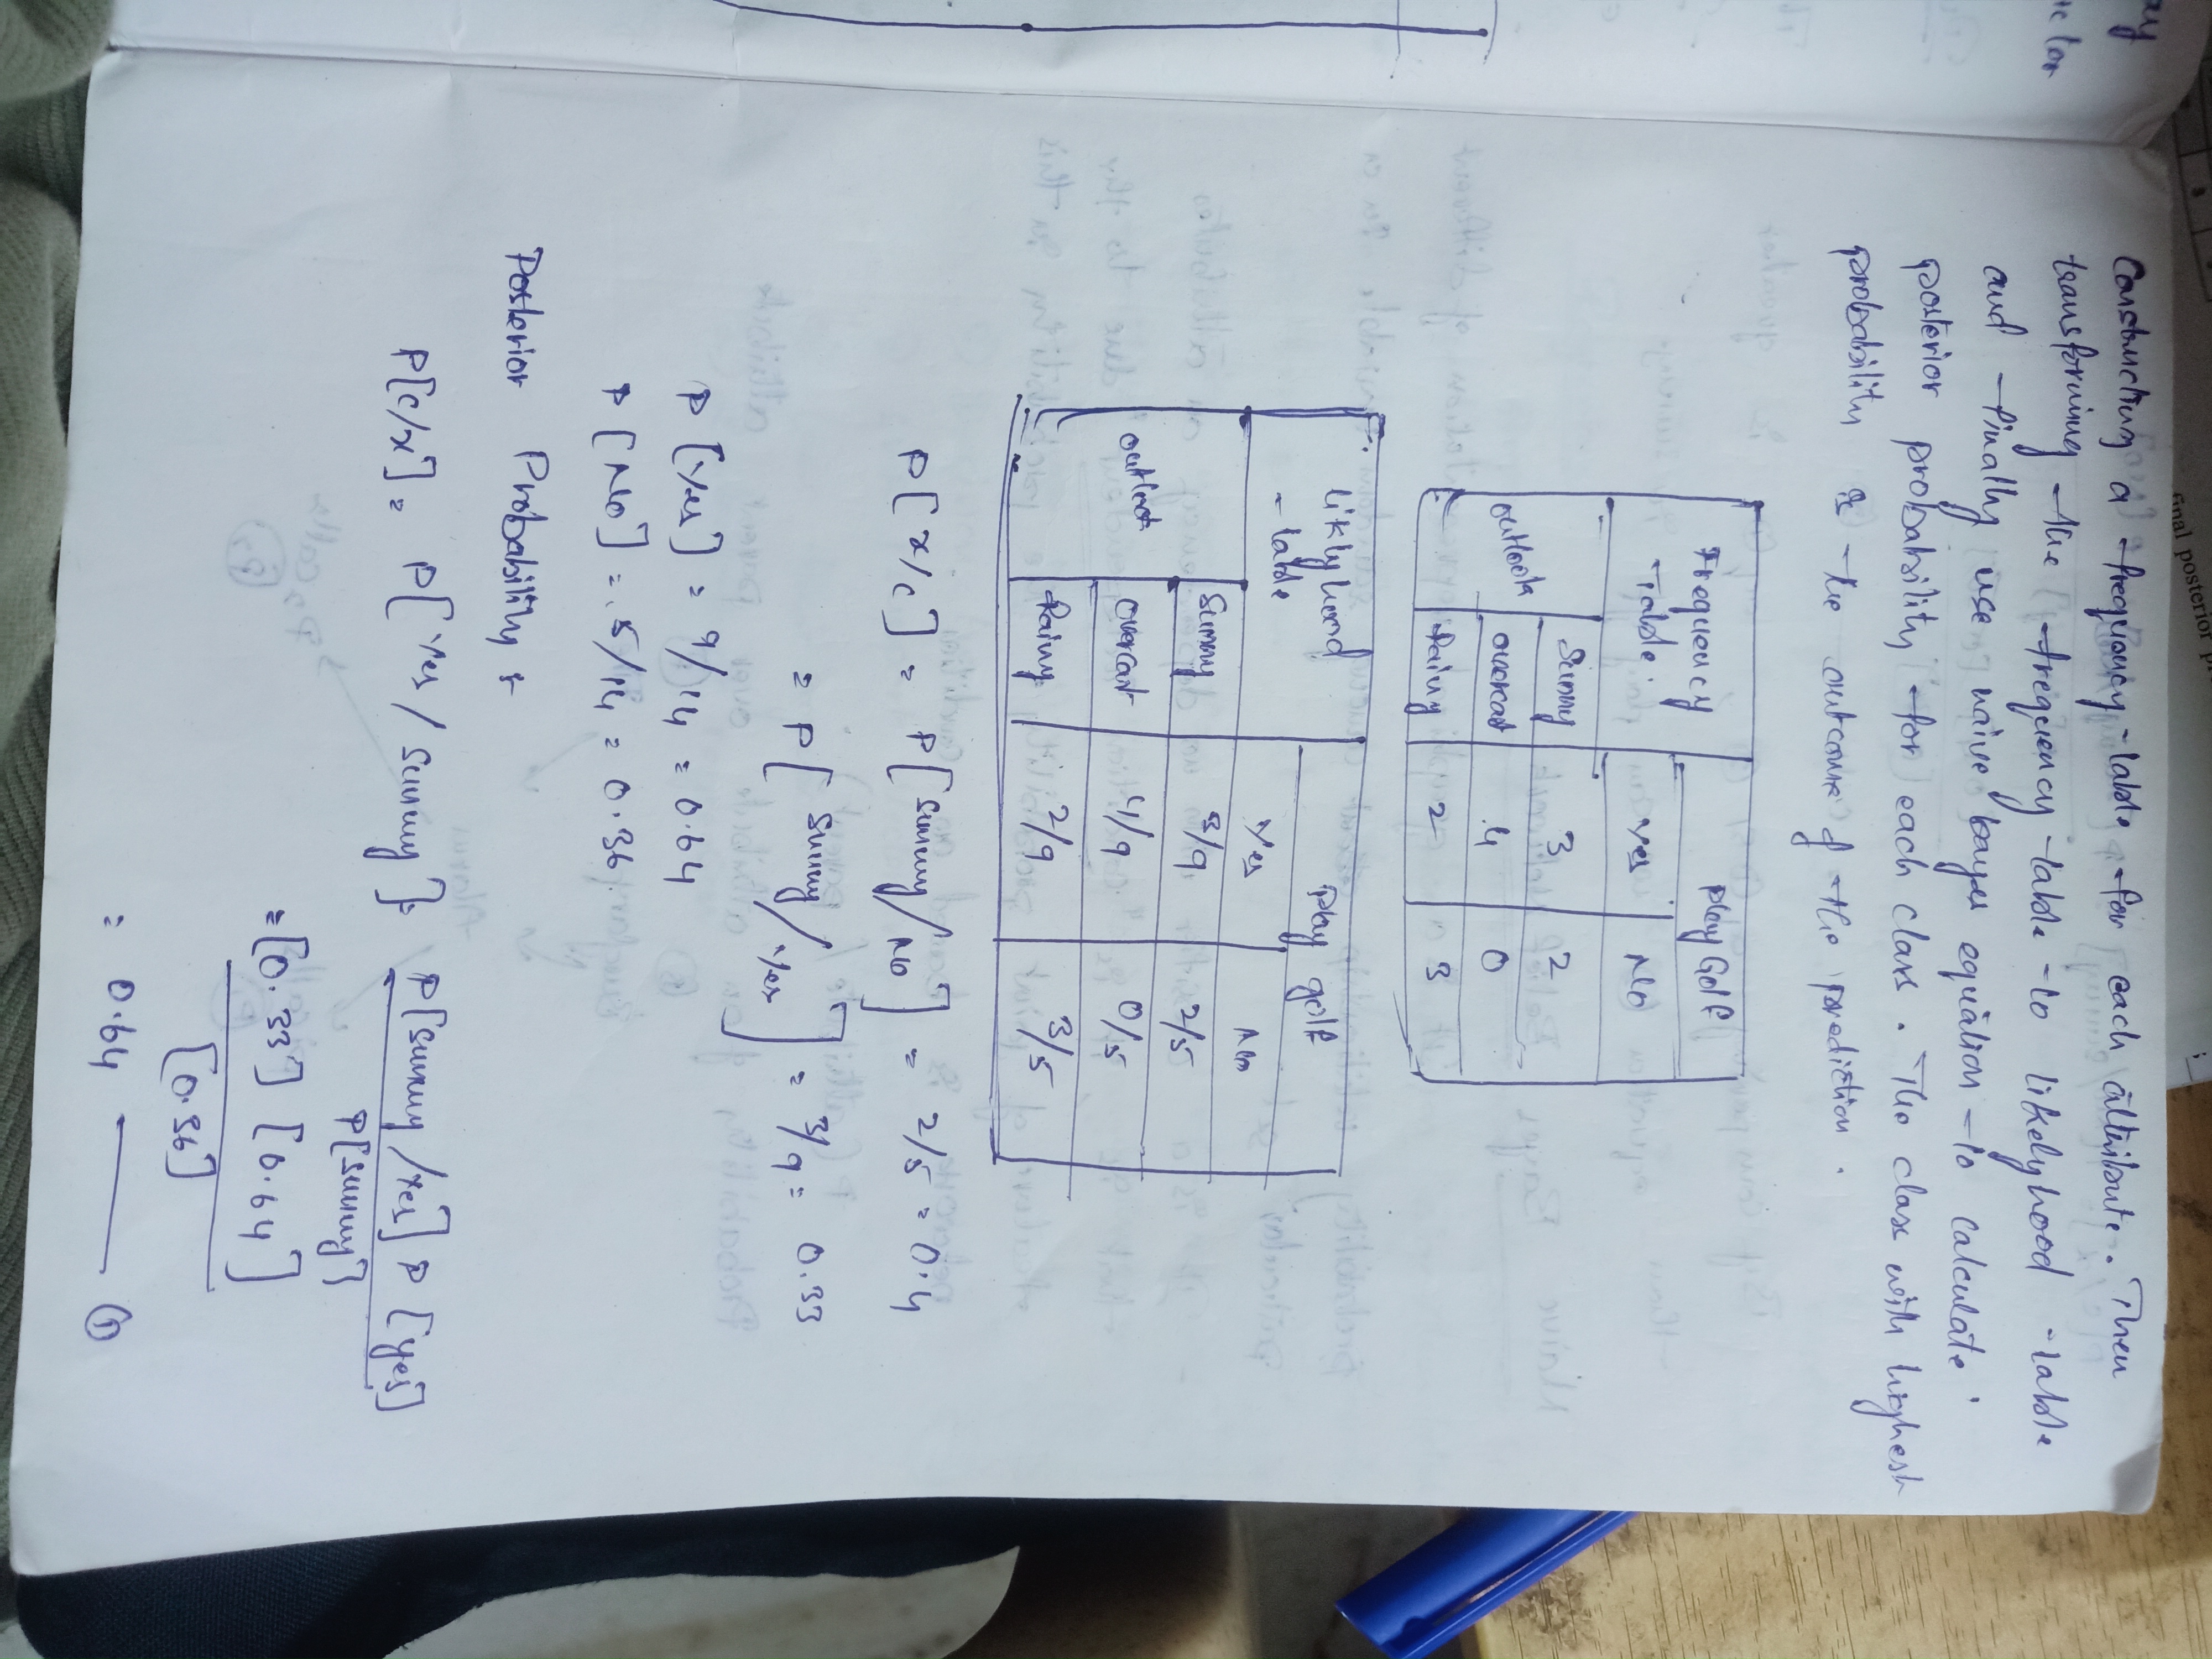 Constructing a frequency table for each attribute. Then
transforming the frequency table to likelyhood table
and finally use naive bayes equation to calculate
posterior probability for each class. The class with highest
probability is the outcome of the prediction.
Frequency Table Play Golf
Yes No
outlook Sunny 3 2
overcast 4 0
Rainy 2 3
Liklyhood table Play golf
Yes No
outlook Sunny 3/9 2/5
overcast 4/9 0/5
Rainy 2/9 3/5
P[x/c] = P[Sunny/No] = 2/5 = 0.4
= P[Sunny/Yes] = 3/9 = 0.33
P[Yes] = 9/14 = 0.64
P[No] = 5/14 = 0.36
Posterior Probability :
P[c/x] = P[Yes/Sunny] = P[Sunny/Yes] P[yes]
P[Sunny]
= [0.33] [0.64]
[0.36]
= 0.64 ——— ①
final posterior